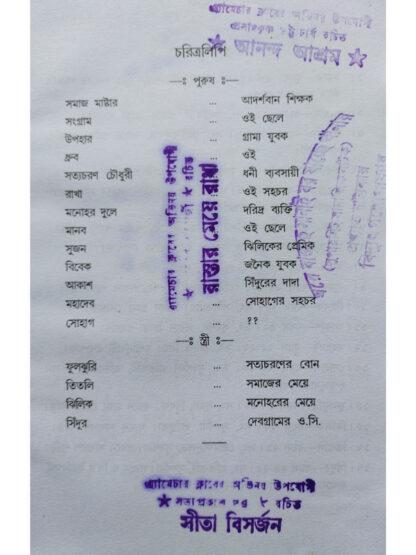 এ্যামেচার ক্লাবের অভিনয় উপযোগী
রচিত
★ আনন্দ আশ্রম ★
চরিত্রলিপি
—ঃ পুরুষ ঃ—
সমাজ মাষ্টার ... আদর্শবান শিক্ষক
সংগ্রাম ... ওই ছেলে
উপহার ... গ্রাম্য যুবক
ধ্রুব ... ওই
সত্যচরণ চৌধুরী ... ধনী ব্যবসায়ী
রাখা ... ওই সহচর
মনোহর দুলে ... দরিদ্র ব্যক্তি
মানব ... ওই ছেলে
সুজন ... ঝিলিকের প্রেমিক
বিবেক ... জনৈক যুবক
আকাশ ... সিঁদুরের দাদা
মহাদেব ... সোহাগের সহচর
সোহাগ ... ??
—ঃ স্ত্রী ঃ—
ফুলঝুরি ... সত্যচরণের বোন
তিতলি ... সমাজের মেয়ে
ঝিলিক ... মনোহরের মেয়ে
সিঁদুর ... দেবগ্রামের ও.সি.
এ্যামেচার ক্লাবের অভিনয় উপযোগী
★ রচিত
রাস্তার মেয়ে রাখা
এ্যামেচার ক্লাবের অভিনয় উপযোগী
★ সত্যপ্রকাশ দত্ত ★ রচিত
সীতা বিসর্জন